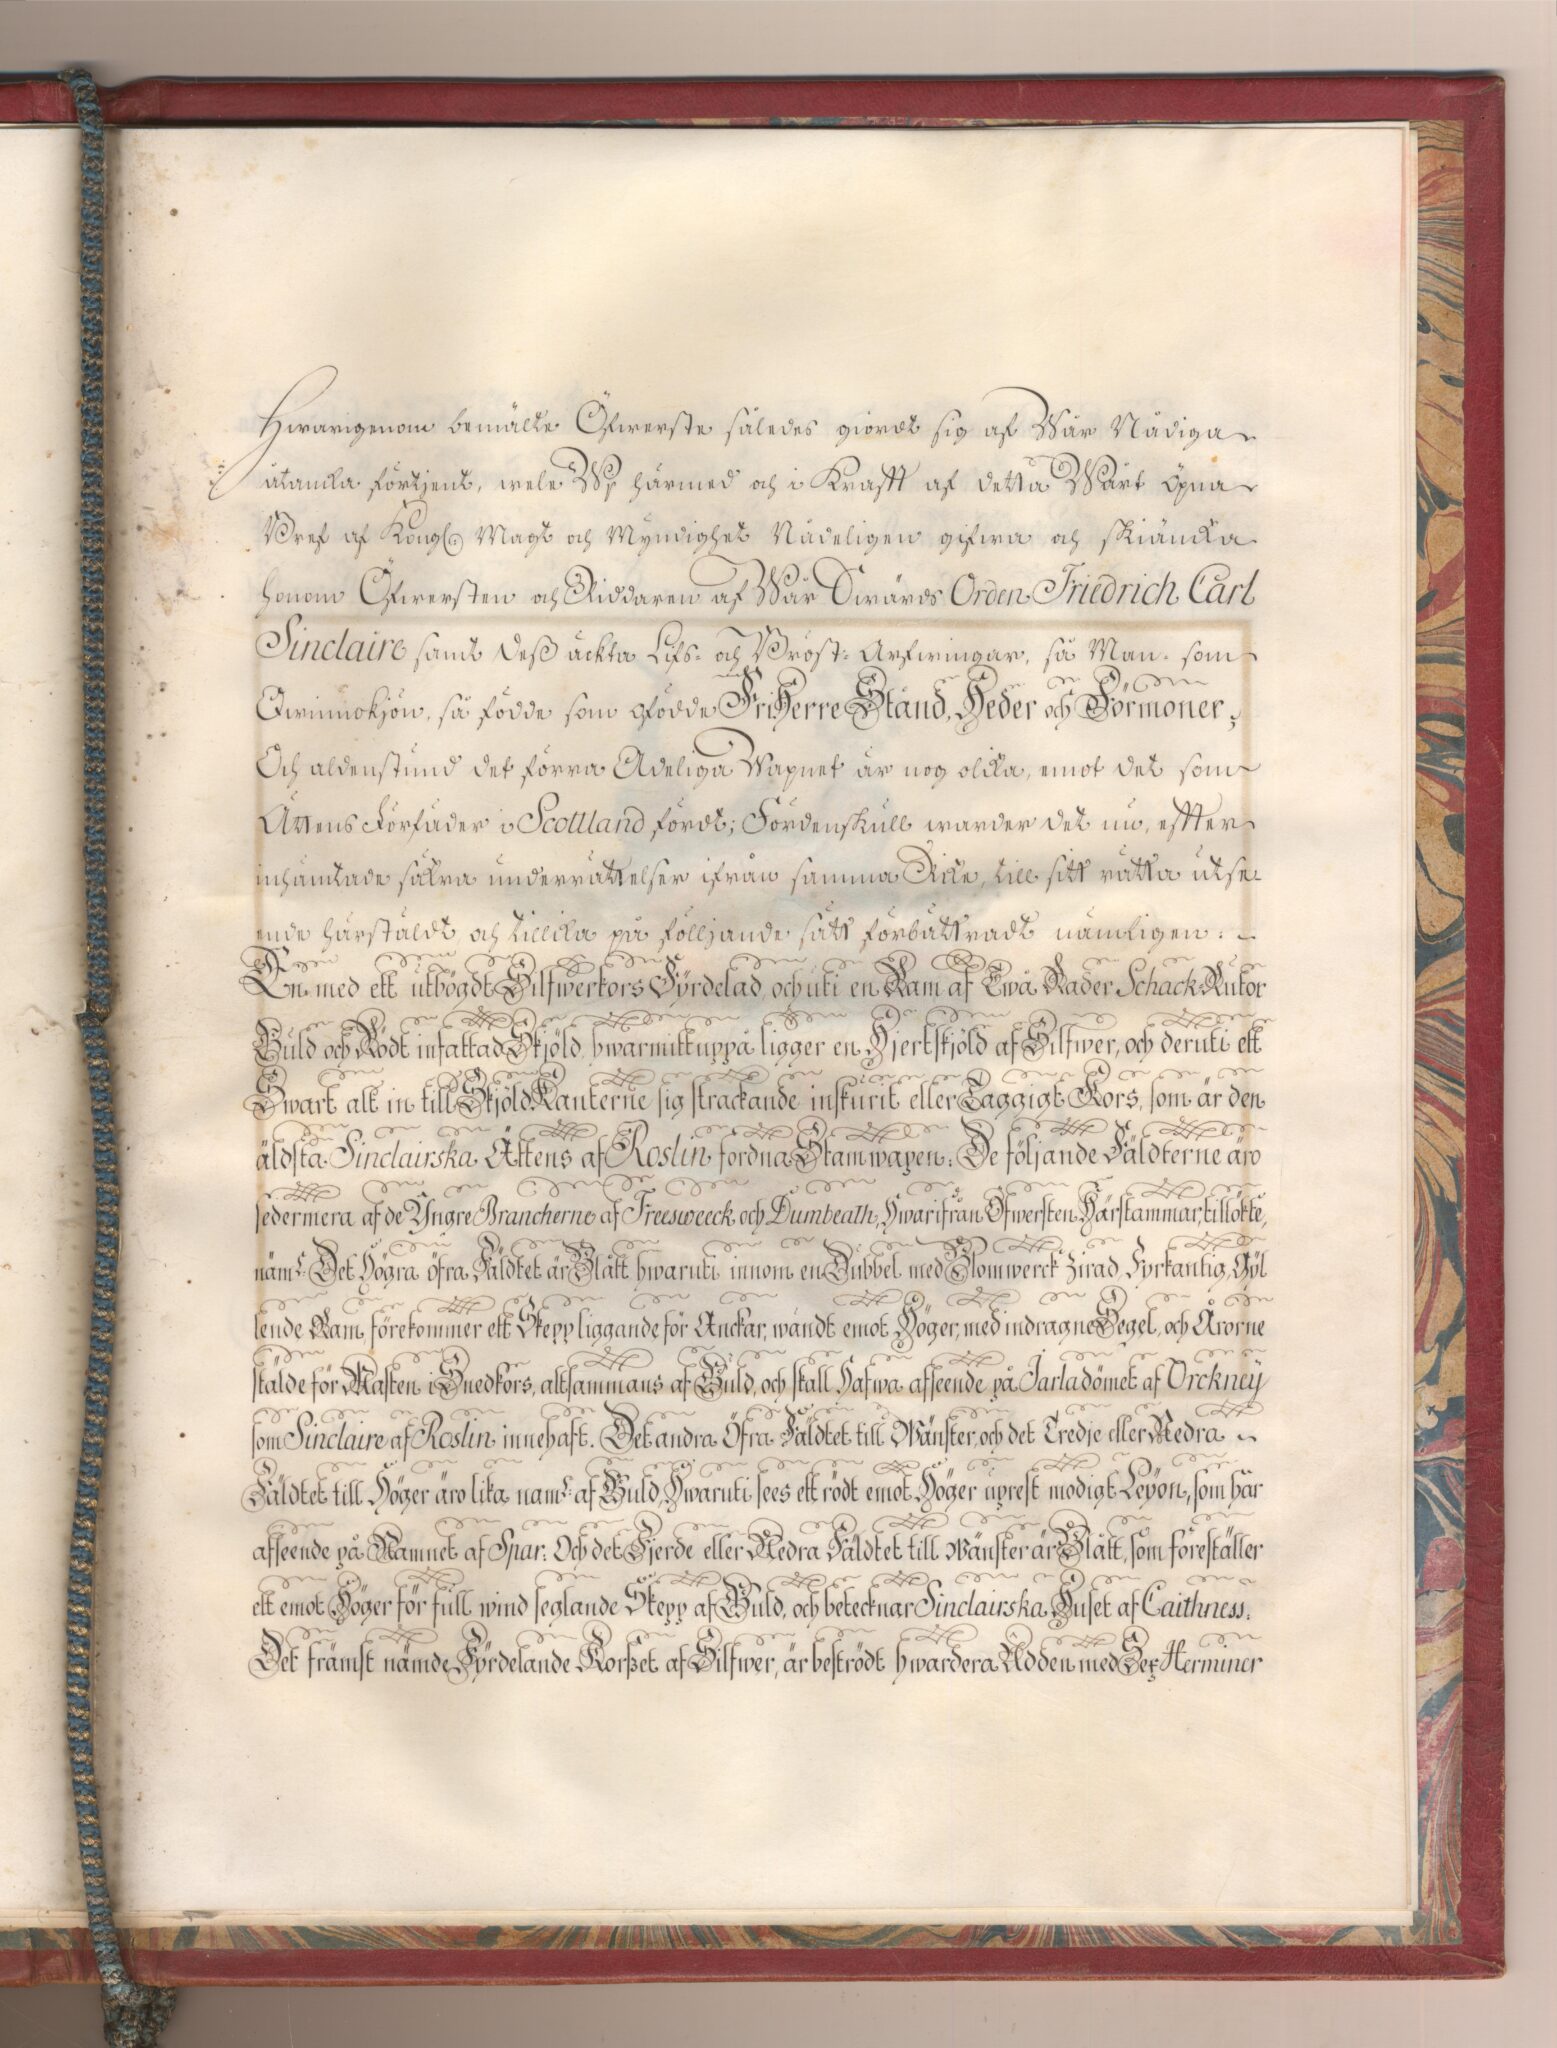 Hwarigenom bemälte Öfwerste således giordt sig af Wår Nådiga
åtancka förtjent, wele Wy härmed och i Krafft af detta Wårt öpna
Bref af Kongl. Magt och Myndighet Nådeligen gifwa och skiäncka
honom Öfwersten och Riddaren af Wår Swärds Orden Friedrich Carl
Sinclaire samt deß äckta Lifs- och Bröst- Arfwingar, så Man- som
Qwinnokjön, så födde som ofödde FriHerre Stånd, Heder och Förmoner;
Och aldenstund det förra Adeliga Wapnet är nog olicka, emot det som
Ättens Förfäder i Scottland fördt; Fördenskull warder det nu, effter
inhämtade säkra underrättelser ifrån samma Ricke, till sitt rätta utse-
ende härstäldt och tillicka på följjande sätt förbättradt nämligen:
En med ett utbögdt Silfwerkors Fyrdelad, och uti en Ram af Twå Rader Schack Rutor
Guld och Rödt infattad Skjöld, hwarmittuppå ligger en Hjertskjöld af Silfwer, och deruti ett
Swart alt in till Skjöld Kanterne sig sträckande inskurit eller Taggigt Kors, som är den
äldsta Sinclairska Ättens af Roslin fordna Stamwapen: De följande Fäldterne äro
sedermera af de Yngre Brancherne af Freesweeck och Dumbeath, Hwarifrån Öfwersten Härstammar, tillökte,
näml. Det Högra öfra Fäldtet är Blått hwaruti innom en Dubbel med Blomwerck Zirad Fyrkantig, Gyl
lende Ram, förekommer ett Skepp liggande för Anckar, wändt emot Höger, med indragne Segel, och Årorne
stälde för Masten i Snedkors, altsammans af Guld, och skall Hafwa afseende på Jarladömet af Orckney
som Sinclaire af Roslin innehaft. Det andra Öfra Fäldtet till Wänster, och det Tredje eller Nedra
Fäldtet till Höger äro lika näml: af Guld, Hwaruti sees ett rödt emot Höger uprest modigt Leyon, som har
afseende på Namnet af Spar: Och det Fjerde eller Nedra Fäldtet till Wänster är Blått, som föreställer
ett emot Höger för full wind seglande Skepp af Guld, och betecknar Sinclairska Huset af Caithness.
Det främst nämde Fyrdelande Korßet af Silfwer, är beströdt hwardera Udden med Sex Herminer